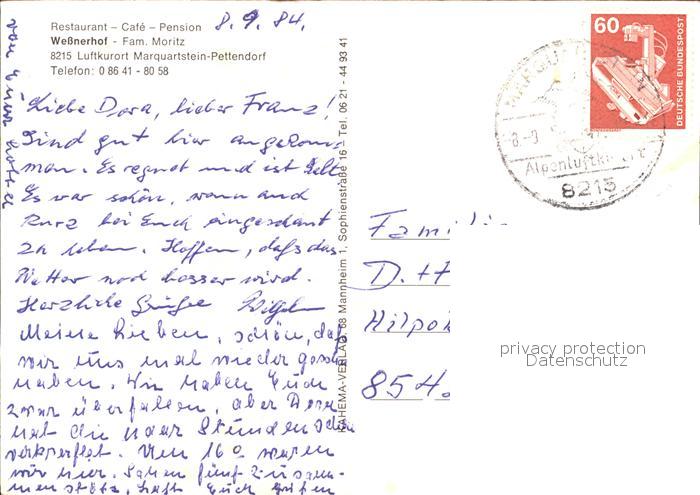 Restaurant – Café – Pension
Weßnerhof - Fam. Moritz
8215 Luftkurort Marquartstein-Pettendorf
Telefon: 0 86 41 - 80 58
8. 9. 84.
Liebe Dora, lieber Franz!
Sind gut hier angekom-
men. Es regnet und ist kalt
Es war schön, wenn auch
kurz bei Euch eingeschaut
zu haben. Hoffen, dafs das
Wetter noch besser wird.
Herzliche Grüße
Meine Lieben, schön, daß
wir uns mal wieder gesehn
haben. Wir haben Euch
zwar überfallen, aber Dora
hat die paar Stunden schön
verkperfekt. Um 16° waren
wir hier. Sahen fünf Zusam-
menstöße. Habt Euch
von Eurer
KAHEMA-VERLAG, 68 Mannheim 1, Sophienstraße 16 – Tel. 06 21 - 44 93 41
60
DEUTSCHE BUNDESPOST
Alpenluftku
8215
Fami
D.
Hilpol
854
privacy protection
Datenschutz